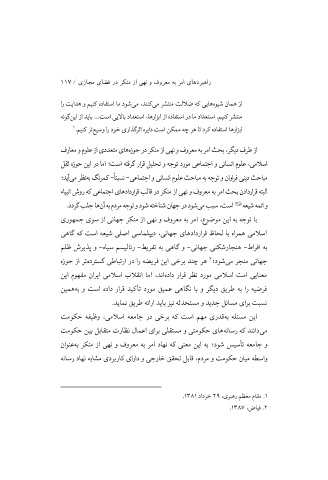 راهبردهای امر به معروف و نهی از منکر در فضای مجازی / ۱۱۷
از همان شیوه‌هایی که ضلالت منتشر می‌کنند، می‌شود ما استفاده کنیم و هدایت را
منتشر کنیم. استعداد ما در استفاده از ابزارها، استعداد بالایی است... باید از این‌گونه
ابزارها استفاده کرد تا هر چه ممکن است دایره اثرگذاری خود را وسیع‌تر کنیم.۱
از طرف دیگر، بحث امر به معروف و نهی از منکر در حوزه‌های متعددی از علوم و معارف
اسلامی، علوم انسانی و اجتماعی مورد توجه و تحلیل قرار گرفته است؛ اما در این حوزه ثقل
مباحث دینی فراوان و توجه به مباحث علوم انسانی و اجتماعی- نسبتاً- کمرنگ به‌نظر می‌آید؛
البته قراردادن بحث امر به معروف و نهی از منکر در قالب قراردادهای اجتماعی که روش انبیاء
و ائمه شیعه است، سبب می‌شود در جهان شناخته شود و توجه مردم به آن‌ها جلب گردد.
با توجه به این موضوع، امر به معروف و نهی از منکر جهانی از سوی جمهوری
اسلامی همراه با لحاظ قراردادهای جهانی، دیپلماسی اصلی شیعه است که گاهی
به افراط- هنجارشکنی جهانی- و گاهی به تفریط- رئالیسم سیاه- و پذیرش ظلم
جهانی منجر می‌شود؛۲ هر چند برخی این فریضه را در ارتباطی گسترده‌تر از حوزه
معنایی امت اسلامی مورد نظر قرار داده‌اند، اما انقلاب اسلامی ایران مفهوم این
فرضیه را به طریق دیگر و با نگاهی عمیق مورد تأکید قرار داده است و به‌همین
نسبت برای مسائل جدید و مستحدثه نیز باید ارائه طریق نماید.
این مسئله به‌قدری مهم است که برخی در جامعه اسلامی، وظیفه حکومت
می‌دانند که رسانه‌های حکومتی و مستقلی برای اعمال نظارت متقابل بین حکومت
و جامعه تأسیس شود؛ به این معنی که نهاد امر به معروف و نهی از منکر به‌عنوان
واسطه میان حکومت و مردم، قابل تحقق خارجی و دارای کاربردی مشابه نهاد رسانه
۱. مقام معظم رهبری، ۲۹ خرداد ۱۳۸۱.
۲. فیاض، ۱۳۸۷.